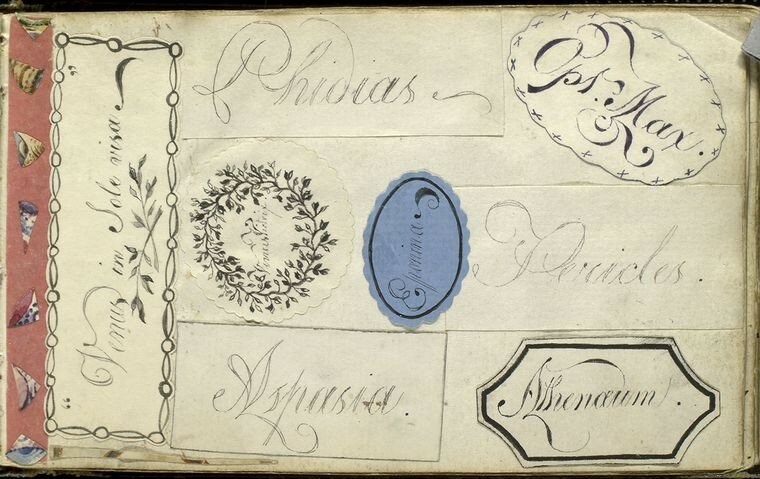 "Venus in Sole visa"
Phidias
Ops. Max.
Eponina
Pericles.
Aspasia.
Athenæum.